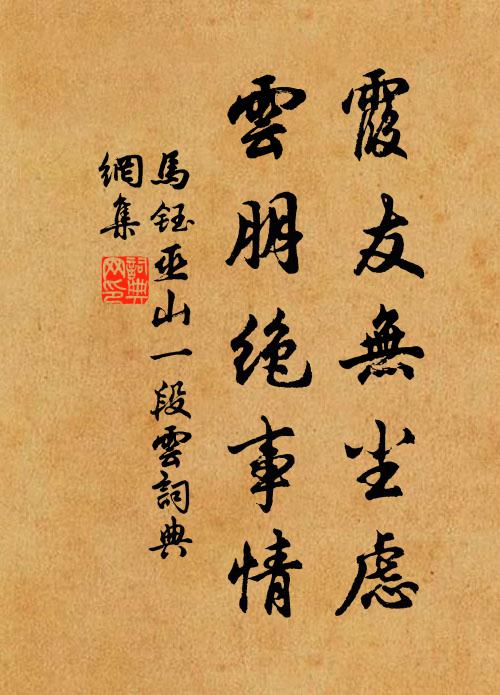 霞友無尘慮
雲朋絶事情
馬鈺巫山一段雲詞典
網集
詞典
网印